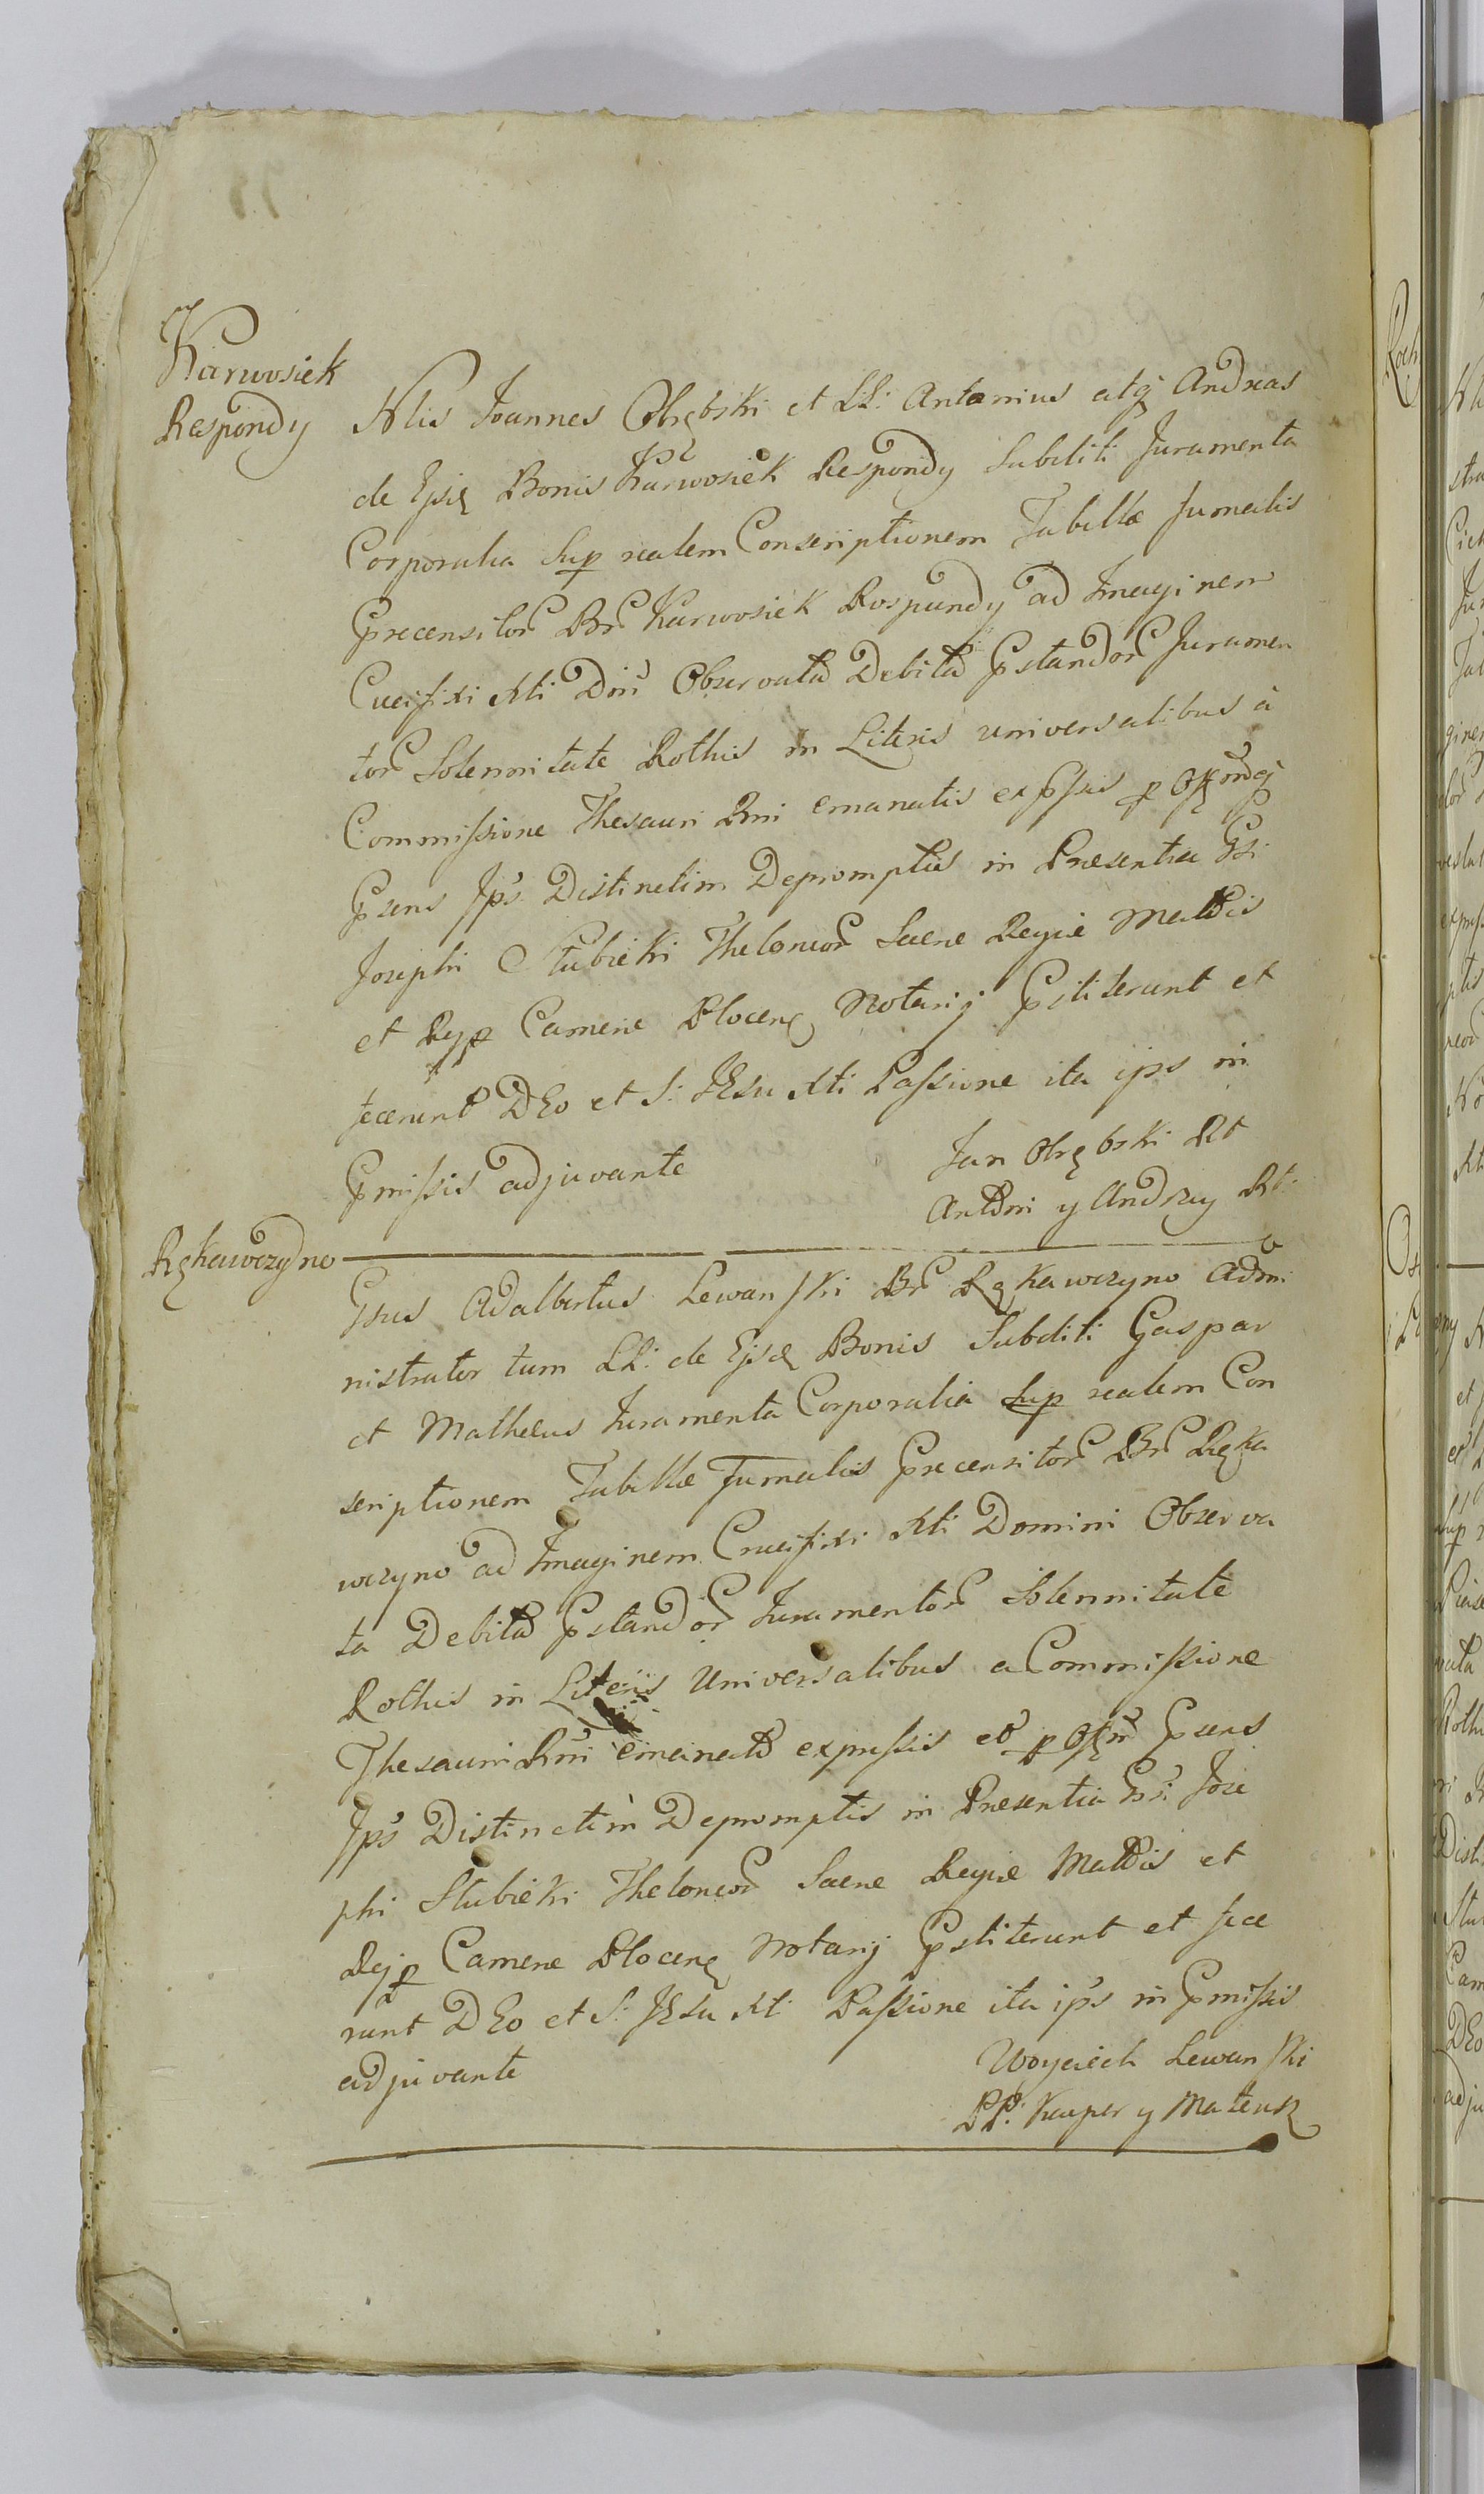 Karwosiek
Respondy
Nlis Joannes Obrębski et LL: Antonius atq Andreas
de Ejsd Bonis Karwosiek Respondy Subditi Juramenta
Corporalia Sup realem Conscriptionem Tabellæ fumalis
Precensitor Br Karwosiek Rospundy ad Imaginem
Cucifixi Xti Dni Observata Debita Pstandor Juramen
tor Solennitate Rothis in Literis universalibus à
Commissione Thesauri Rni emanatis expssis p
Psens Jps Distinctim Depromptis in Præsentia Gsi
Josephi Stubicki Theloneor Sacræ Regiæ Mattis
et Reyp Cameræ Plocens Notarij Pstiterunt et
fecerunt DEo et S: JEsu Xti Passione ita ips in
Pmissis adjuvante
Jan Obrębski Rt
Antoni y Andrzey Rt:
Rękawczyno
Gsus Adalbertus Lewanski Br Rękawczyno Admi
nistrator tum LL: de Ejsd Bonis Subditi Gaspar
et Matheus Juramenta Corporalia Sup realem Con
scriptionem Tabellæ Fumalis Precensitor Br Ręka
wczyno ad Imaginem Crucifixi Xti Domini Observa
ta Debita Pstandor Juramentor Solennitate
Rothis in Literis Universalibus a Commissione
Thesauri Rni emanat expressis et p Psens
Jps Distinctim Depromptis in Præsentia Gsi Jose
phi Stubicki Theloneor Sacræ Regiæ Mattis et
Rejp Cameræ Plocens Notarij Pstiterunt et fece
runt DEo et S: JEsu Xti Passione ita ips in Pmissis
adjuvante
Woyciech Lewanski
PP: Kasper y Mateusz